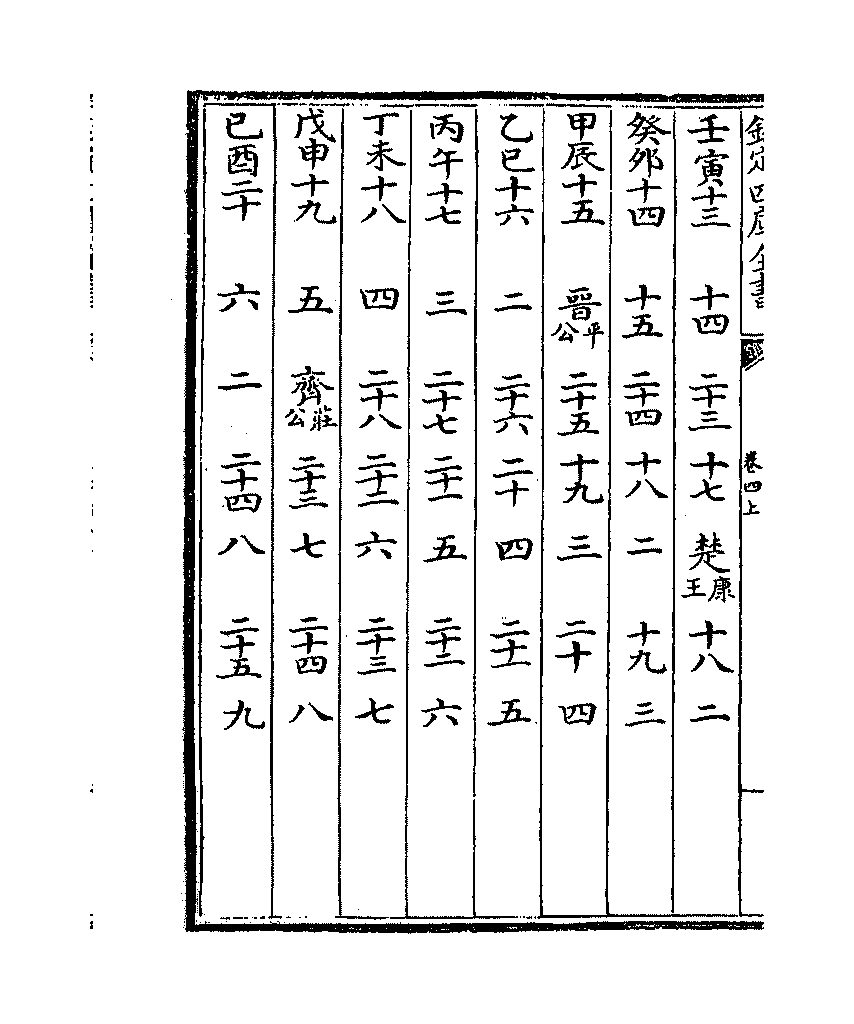 欽定四庫全書 卷四上
壬寅十三 十四 二十三 十七 楚康王 十八 二
癸夘十四 十五 二十四 十八 二 十九 三
甲辰十五 晉平公 二十五 十九 三 二十 四
乙巳十六 二 二十六 二十 四 二十一 五
丙午十七 三 二十七 二十一 五 二十二 六
丁未十八 四 二十八 二十二 六 二十三 七
戊申十九 五 齊莊公 二十三 七 二十四 八
己酉二十 六 二 二十四 八 二十五 九